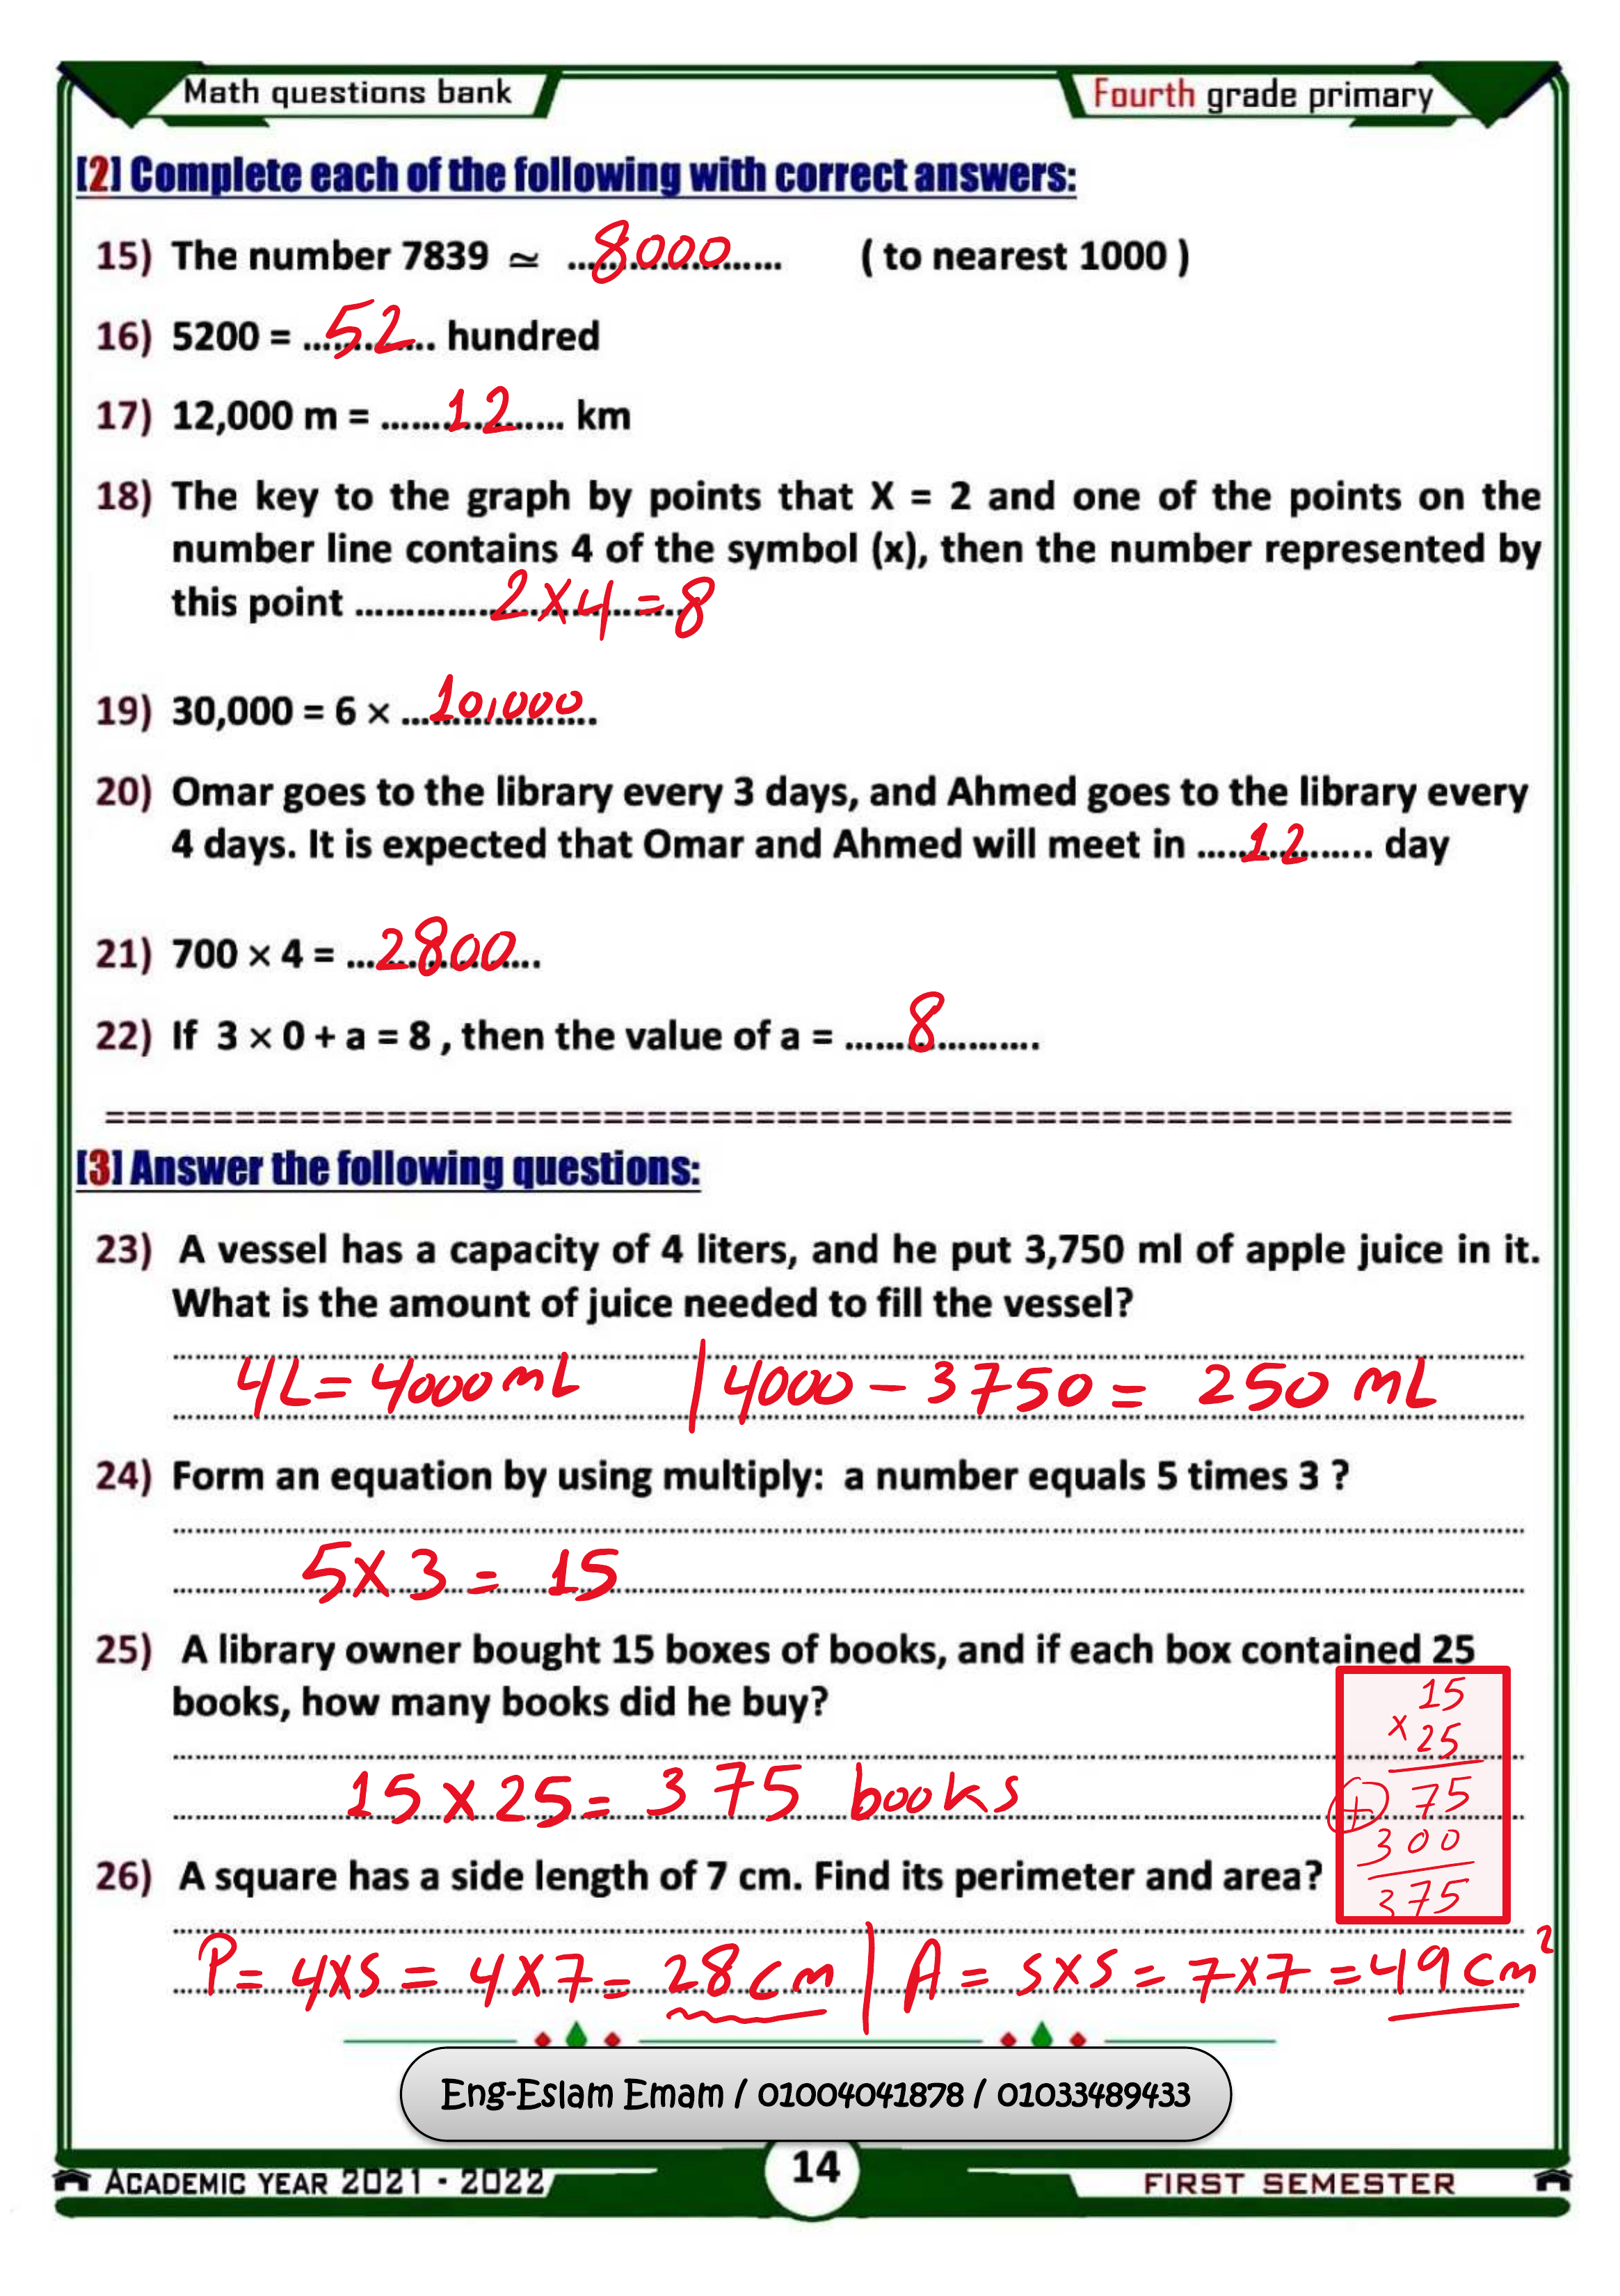 Math questions bank
Fourth grade primary
[2] Complete each of the following with correct answers:
15) The number 7839 ≃ ....8000.... ( to nearest 1000 )
16) 5200 = ....52.... hundred
17) 12,000 m = ....12.... km
18) The key to the graph by points that X = 2 and one of the points on the
number line contains 4 of the symbol (x), then the number represented by
this point ....2×4=8
19) 30,000 = 6 × ....10,000....
20) Omar goes to the library every 3 days, and Ahmed goes to the library every
4 days. It is expected that Omar and Ahmed will meet in ....12.... day
21) 700 × 4 = ....2800....
22) If 3 × 0 + a = 8 , then the value of a = ....8....
====================================
[3] Answer the following questions:
23) A vessel has a capacity of 4 liters, and he put 3,750 ml of apple juice in it.
What is the amount of juice needed to fill the vessel?
4L = 4000 mL | 4000 - 3750 = 250 mL
24) Form an equation by using multiply: a number equals 5 times 3 ?
5×3 = 15
25) A library owner bought 15 boxes of books, and if each box contained 25
books, how many books did he buy?
15
× 25
+ 75
300
375
15 × 25 = 375 books
26) A square has a side length of 7 cm. Find its perimeter and area?
P = 4×S = 4×7 = 28 cm | A = S×S = 7×7 = 49 cm²
Eng-Eslam Emam / 01004041878 / 01033489433
ACADEMIC YEAR 2021 - 2022
14
FIRST SEMESTER